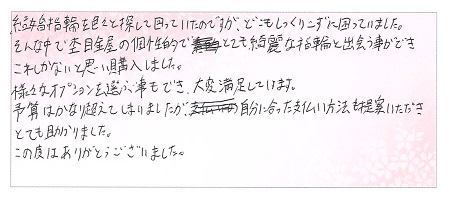 結婚指輪を色々と探して回っていたのですが、どこもしっくりこずに困っていました。
そんな中で杢目金屋の個性的でとても綺麗な指輪と出会う事ができ
これしかないと思い購入しました。
様々なオプションを選ぶ事もでき、大変満足しています。
予算はかなり超えてしまいましたが、自分に合った支払い方法も提案いただき
とても助かりました。
この度はありがとうございました。